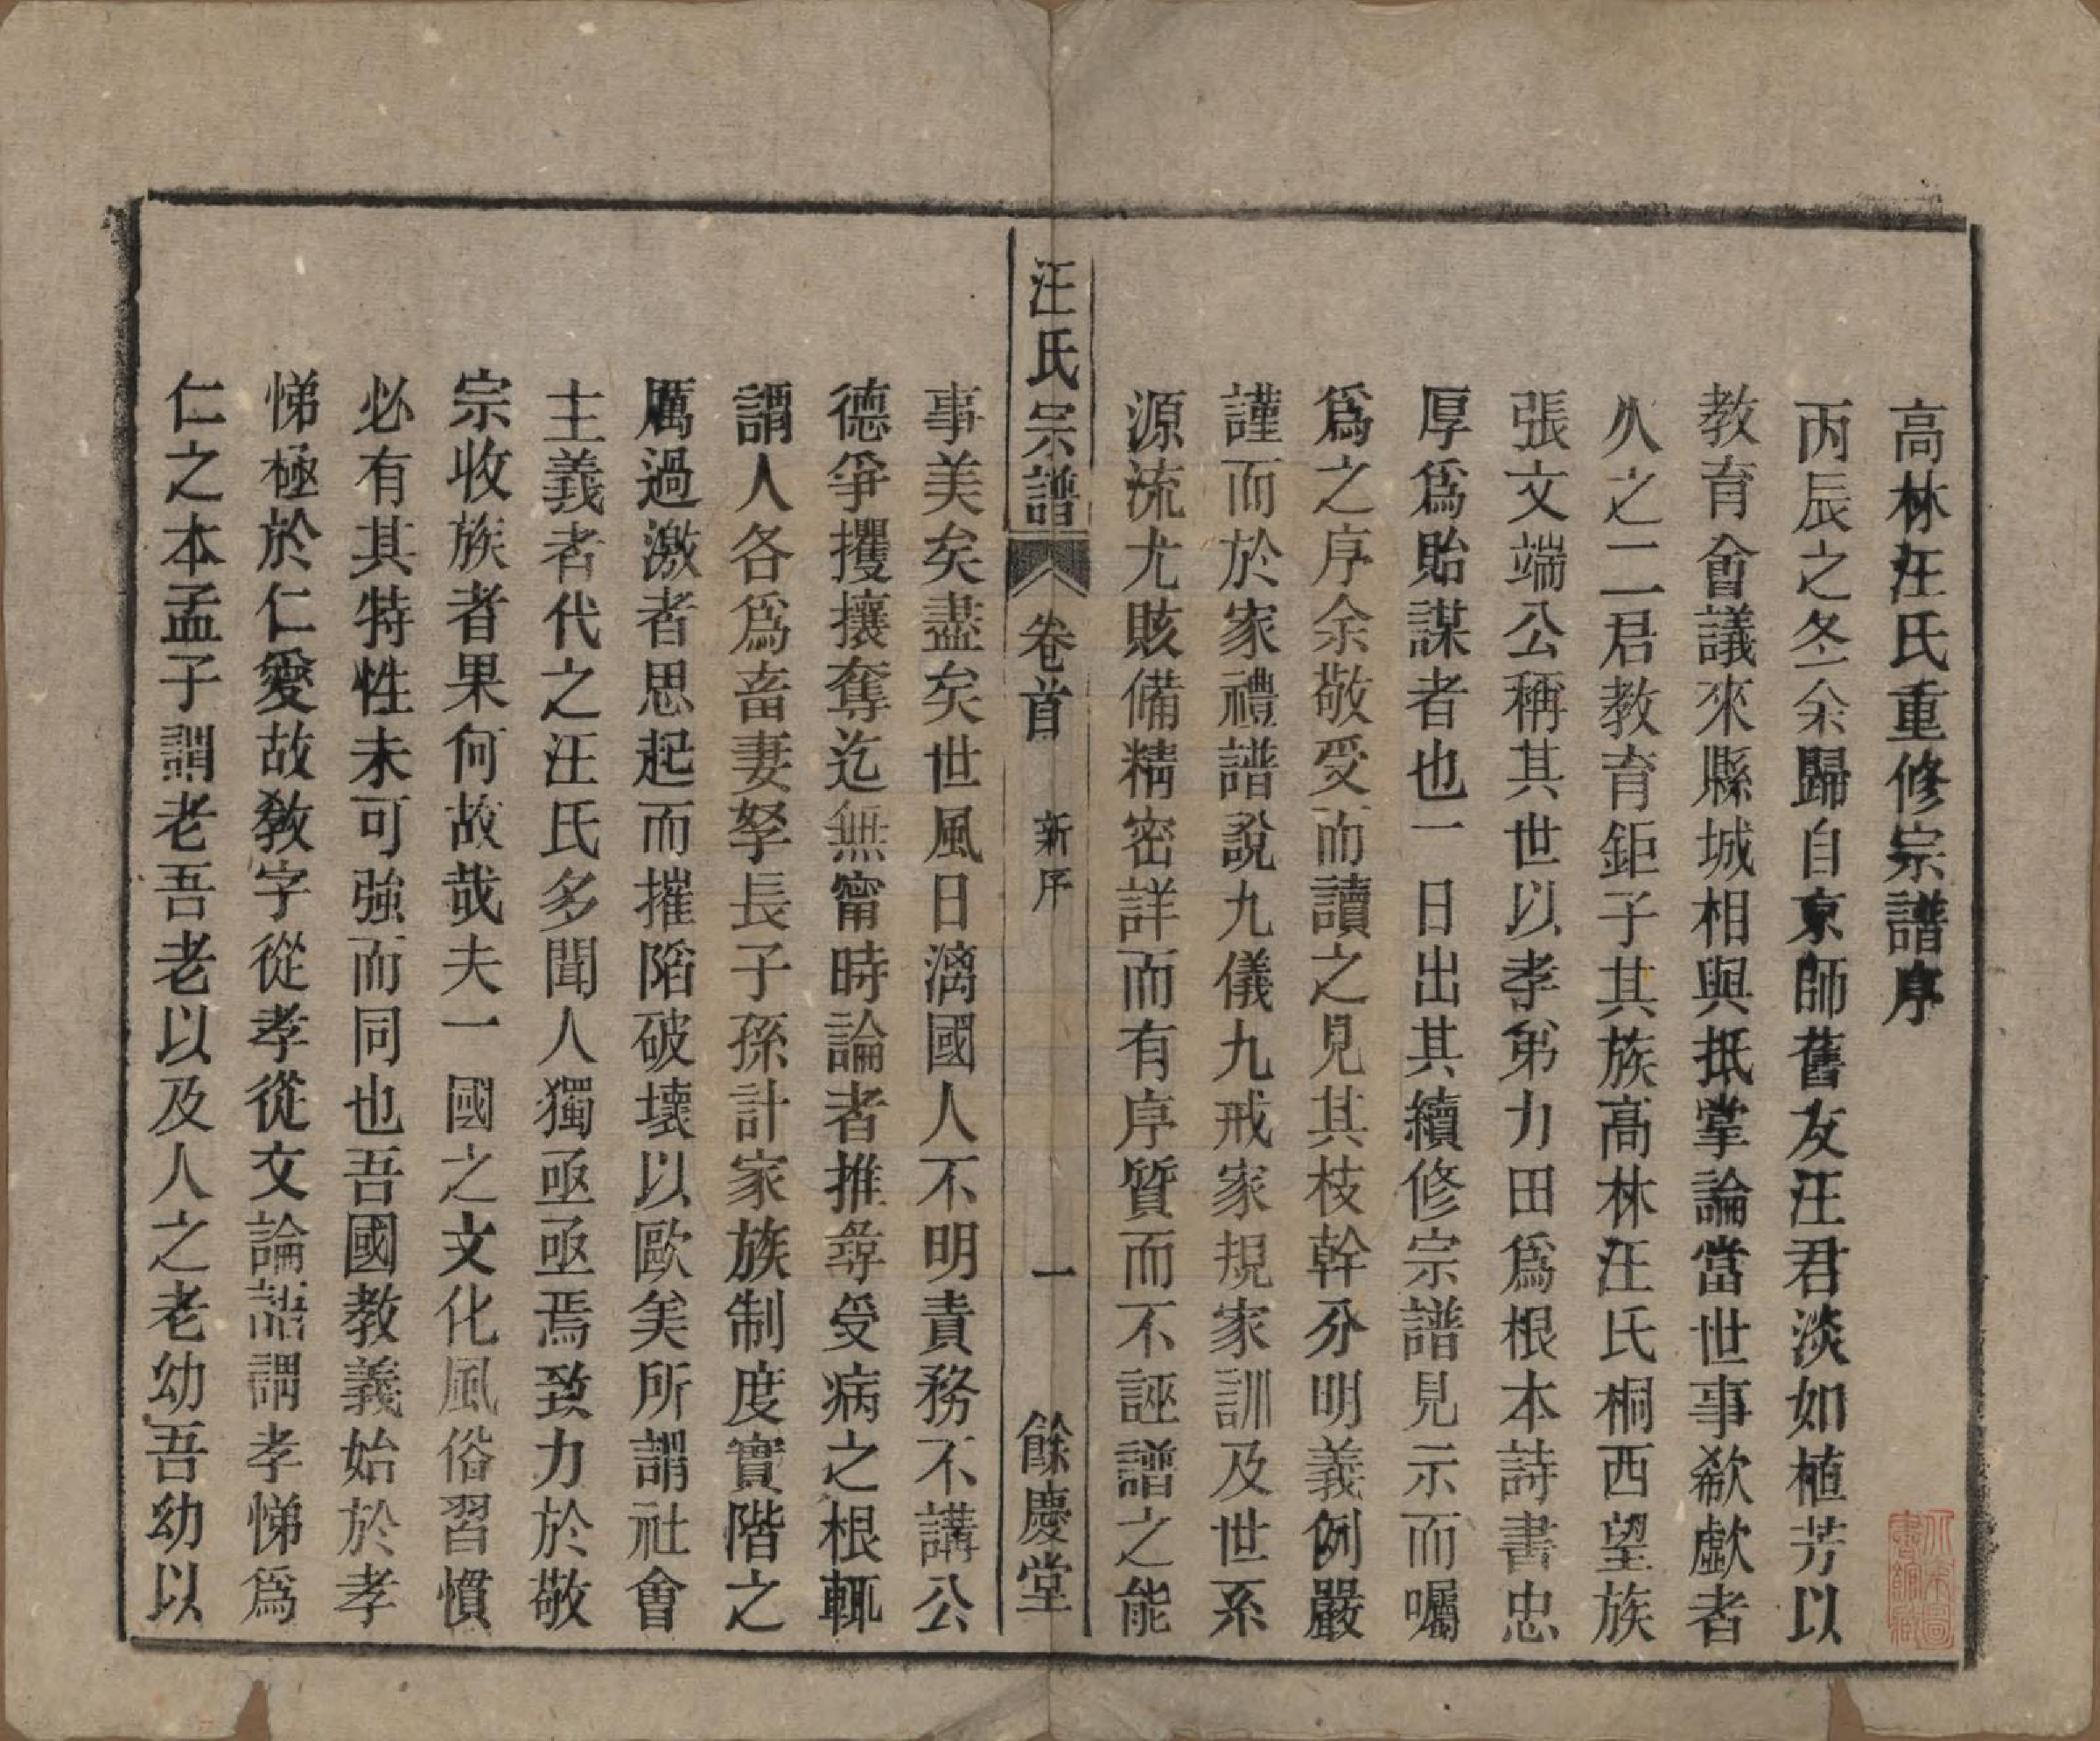 高林汪氏重修宗譜序
丙辰之冬余歸自京師舊友汪君淡如植芳以
教育會議來縣城相與抵掌論當世事欷歔者
久之二君教育鉅子其族高林汪氏桐西望族
張文端公稱其世以孝弟力田爲根本詩書忠
厚爲貽謀者也一日出其續修宗譜見示而囑
爲之序余敬受而讀之見其枝幹分明義例嚴
謹而於家禮譜說九儀九戒家規家訓及世系
源流尤賅備精密詳而有序質而不誣譜之能
汪氏宗譜 卷首 新序 一 餘慶堂
事美矣盡矣世風日漓國人不明責務不講公
德爭攫攘奪迄無甯時論者推尋受病之根輒
謂人各爲畜妻孥長子孫計家族制度實階之
厲過激者思起而摧陷破壞以歐美所謂社會
主義者代之汪氏多聞人獨亟亟焉致力於敬
宗收族者果何故哉夫一國之文化風俗習慣
必有其特性未可強而同也吾國教義始於孝
悌極於仁愛故教字從孝從文論語謂孝悌爲
仁之本孟子謂老吾老以及人之老幼吾幼以